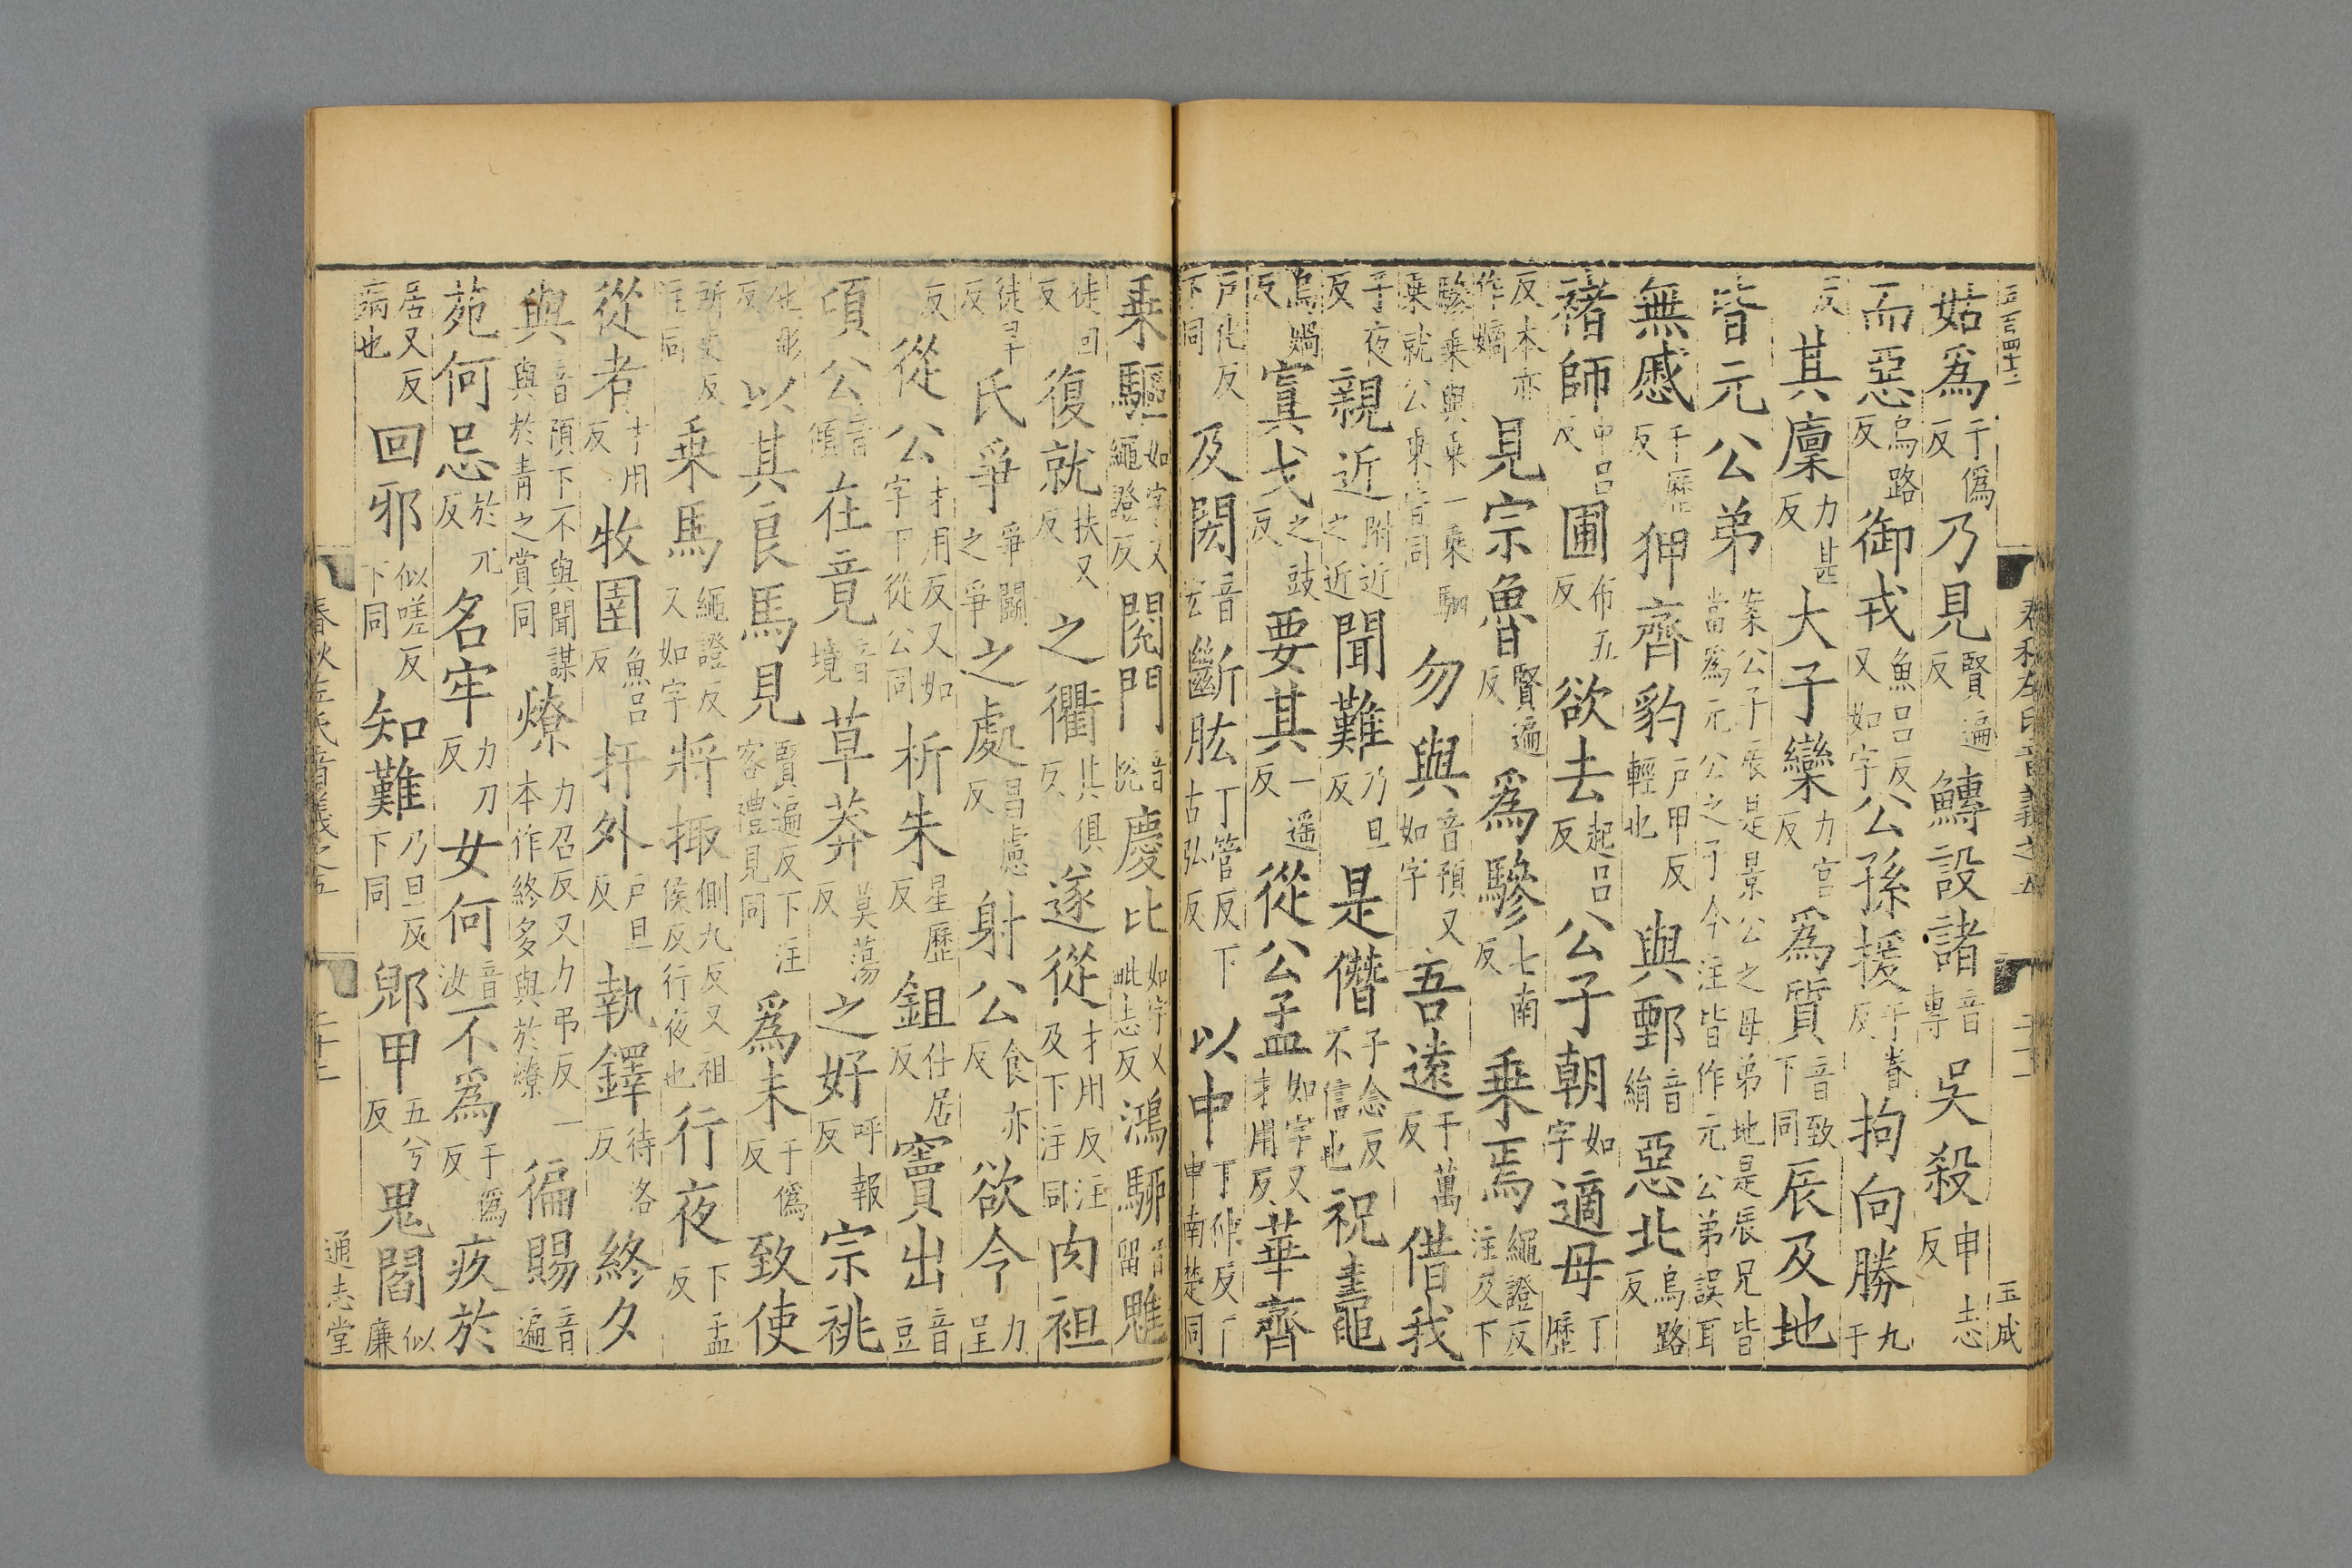 姑爲于僞反乃見賢遍反鱄設諸音專吳殺申志反
而惡烏路反御戎魚呂反又如字公孫援于眷反拘向勝九于
反其廩力甚反大子欒力官反爲質音致下同辰及地
皆元公弟案公子辰是景公之母弟地是辰兄皆當爲元公之子今注皆作元公弟誤耳
無慼千歷反狎齊豹戶甲反輕也與鄄音絹惡北烏路反
褚師中呂反圃布五反欲去起呂反公子朝如字適母丁歷
反本亦作嫡見宗魯賢遍反爲驂七南反乗焉繩證反注及下
驂乗與乗一乗駟乗就公乗皆同勿與音預又如字吾遠于萬反借我
子夜反親近附近之近聞難乃旦反是僭子念反不信也祝鼃
烏媧反寘戈之豉反要其一遥反從公孟如字又才用反華齊
戶化反下同及閎音宏斷肱丁管反下古弘反以中丁仲反下申南楚同
乗驅如字又繩證反閱門音悅慶比如字又毗志反鴻駵音留魋
徒回反復就扶又反之衢其俱反遂從才用反注及下注同肉袒
徒旱反氏爭爭鬭之爭之處昌慮反射公食亦反欲令力呈
反從公才用反又如字下從公同析朱星歷反鉏仕居反竇出音豆
頃公音傾在竟音境草莽莫蕩反之好呼報反宗祧
他彫反以其良馬見賢遍反下注客禮見同爲未于僞反致使
所吏反注同乗馬繩證反又如字將掫側九反又祖侯反行夜也行夜下孟反
從者才用反牧圉魚呂反扞外戶旦反執鐸待洛反終夕
與音預下不與聞謀與於青之賞同燎力召反又力弔反一本作終夕與於燎徧賜音遍
苑何忌於元反名牢力刀反女何音汝不爲于僞反疚於
居又反病也回邪似嗟反下同知難乃旦反下同郳甲五兮反鬼閻似廉
春秋左氏音義之五
通志堂